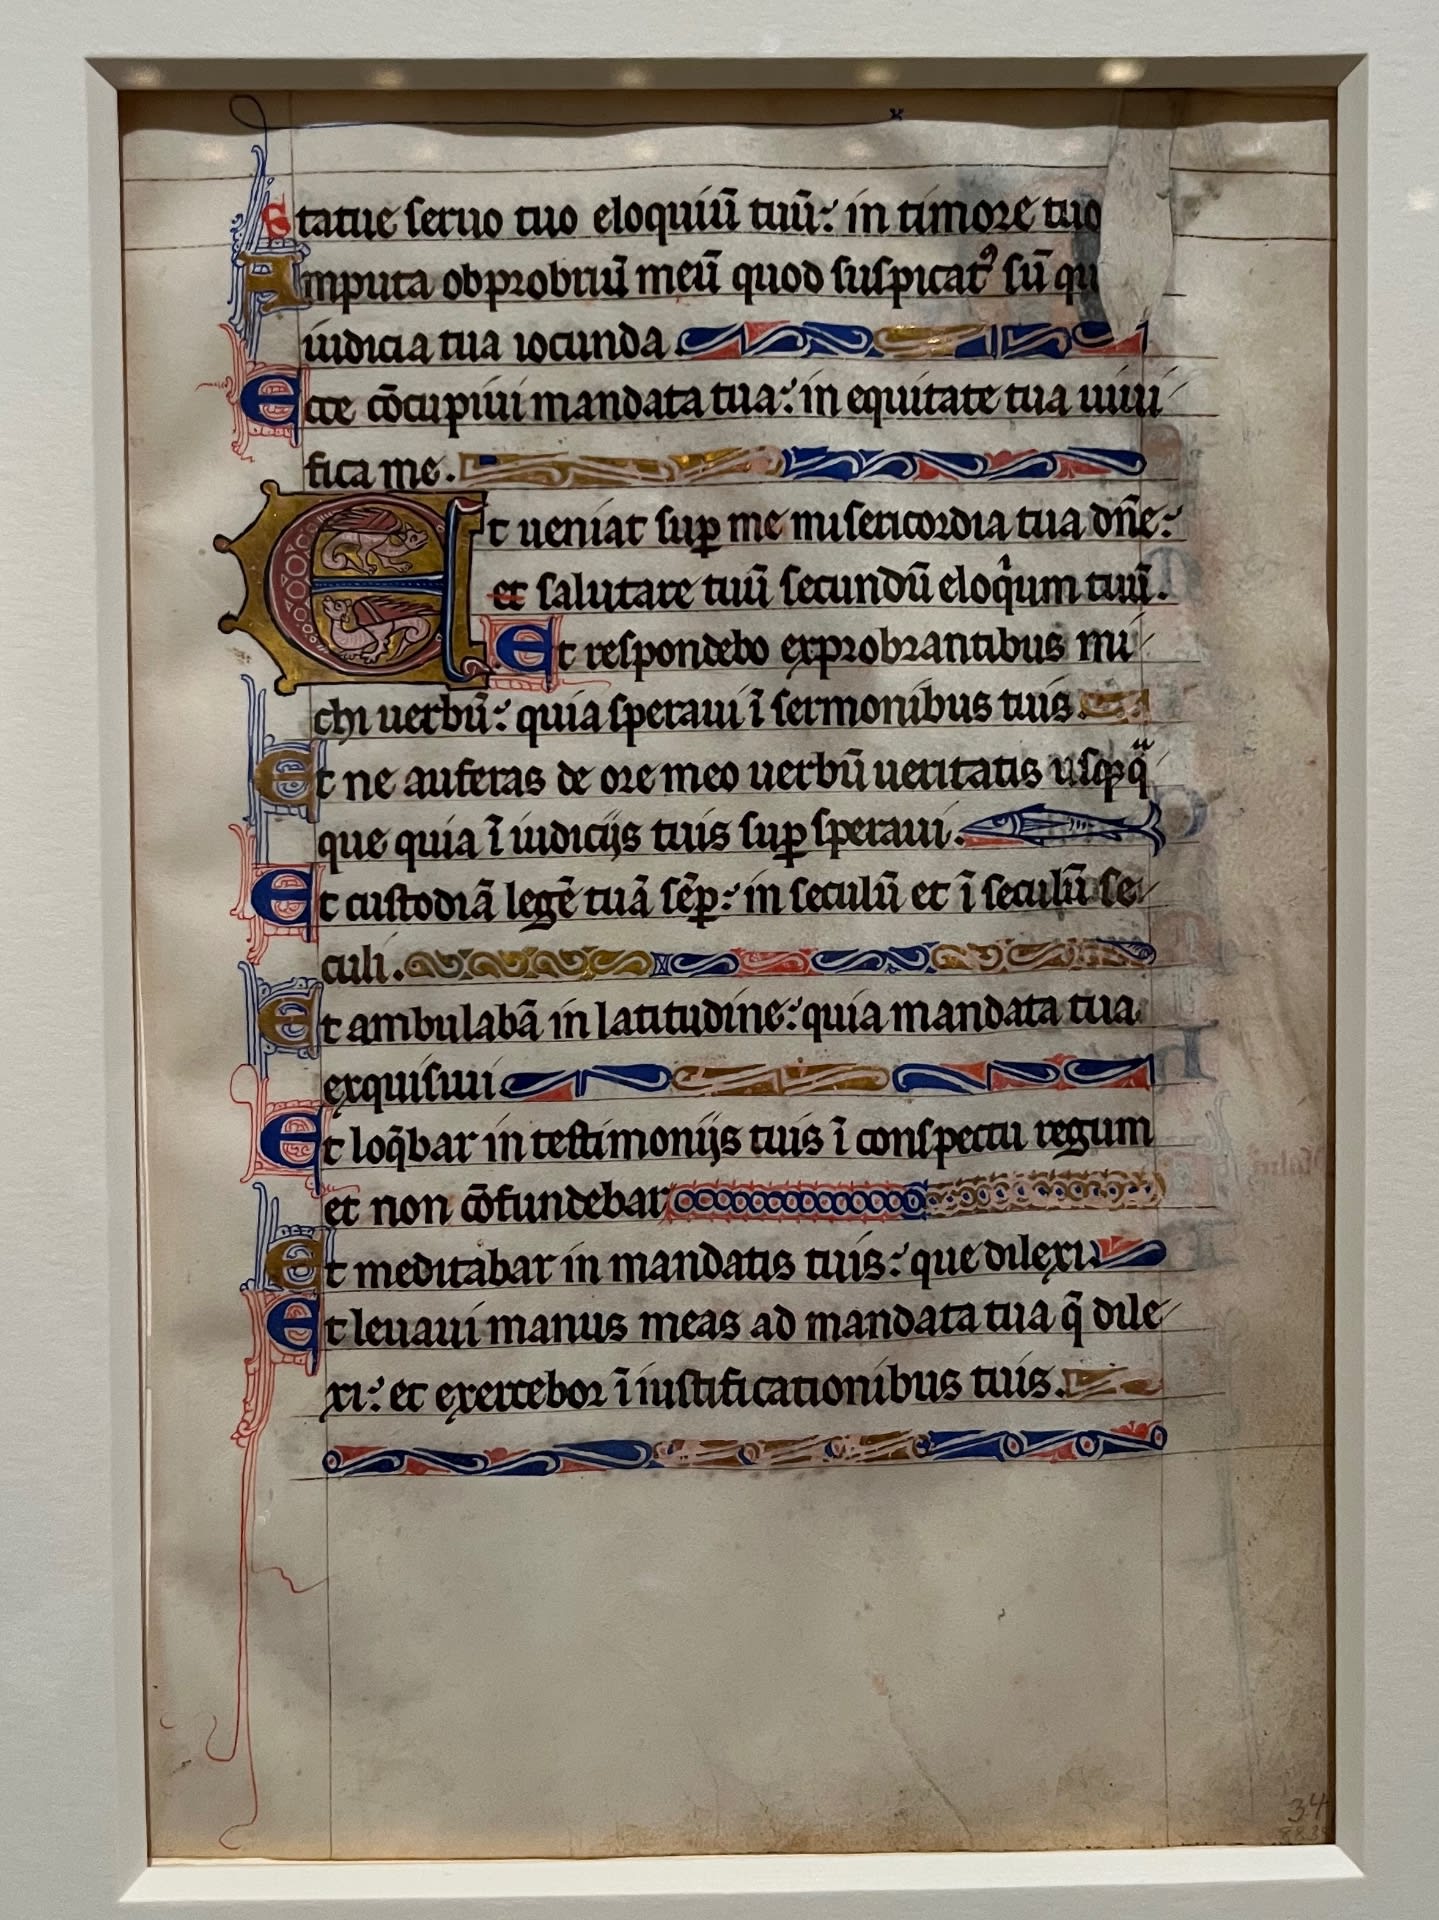 Statue seruo tuo eloquiū tuū: in timore tuo
Amputa obprobriū meū quod suspicatꝰ sū qu
iudicia tua iocunda
Ecce cōcupiui mandata tua: in equitate tua uiui
fica me.
Et ueniat suꝑ me misericordia tua dn̄e:
et salutare tuū secundū eloqͥum tuū.
Et respondebo exprobrantibus mi
chi uerbū: quia speraui ī sermonibus tuis.
Et ne auferas de ore meo uerbū ueritatis usqꝫqͣ
que quia ī iudicijs tuis suꝑ speraui.
Et custodiā legē tuā sēꝑ: in seculū et ī seculū se
culi.
Et ambulabā in latitudine: quia mandata tua
exquisiui
Et loq̄bar in testimonijs tuis ī conspectu regum
et non cōfundebar
Et meditabar in mandatis tuis: que dilexi.
Et leuaui manus meas ad mandata tua q̄ dile
xi: et exercebor ī iustificationibus tuis.
34